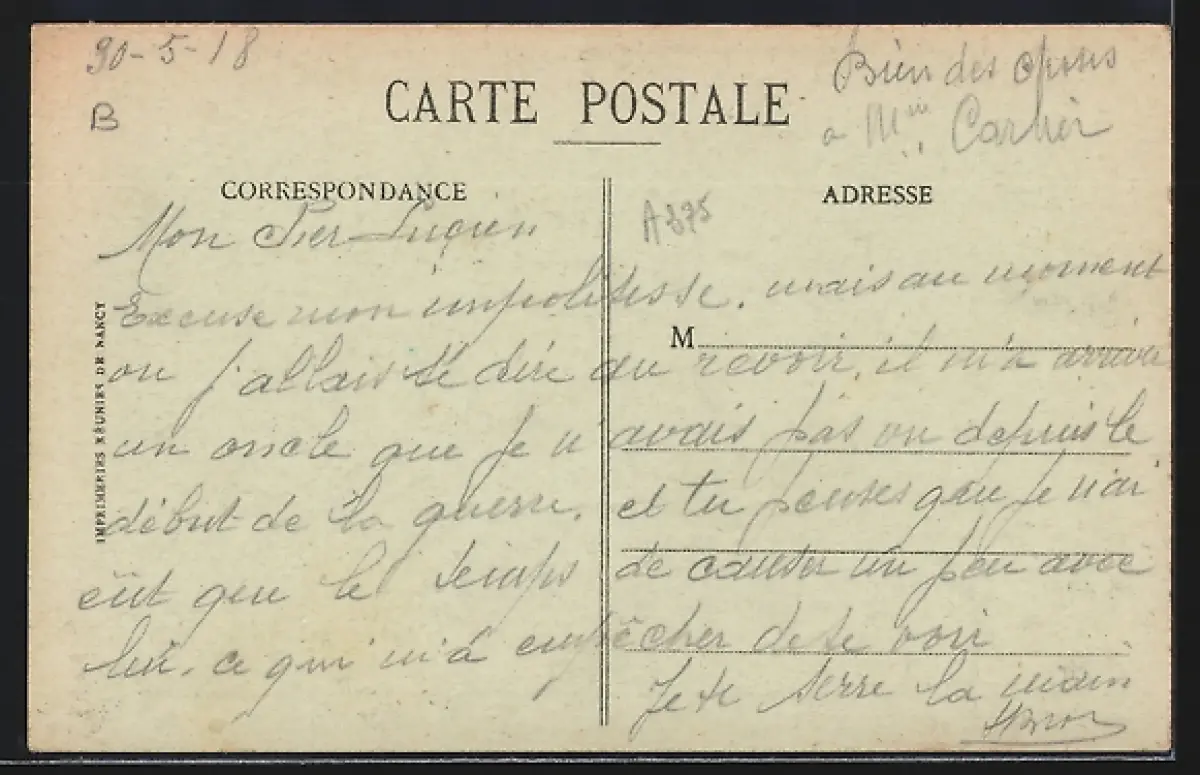 30-5-18
B
CARTE POSTALE
Bien des choses
à Mme Carlier
CORRESPONDANCE
ADRESSE
A 375
M
IMPRIMERIES RÉUNIES DE NANCY
Mon Cher Lucien
Excuse mon impolitesse, mais au moment
ou j'allais te dire au revoir, il m'a arrivé
un oncle que je n'avais pas vu depuis le
début de la guerre, et tu penses que je n'ai
eût que le temps de causer un peu avec
lui, ce qui m'a empêcher de te voir
Je te serre la main